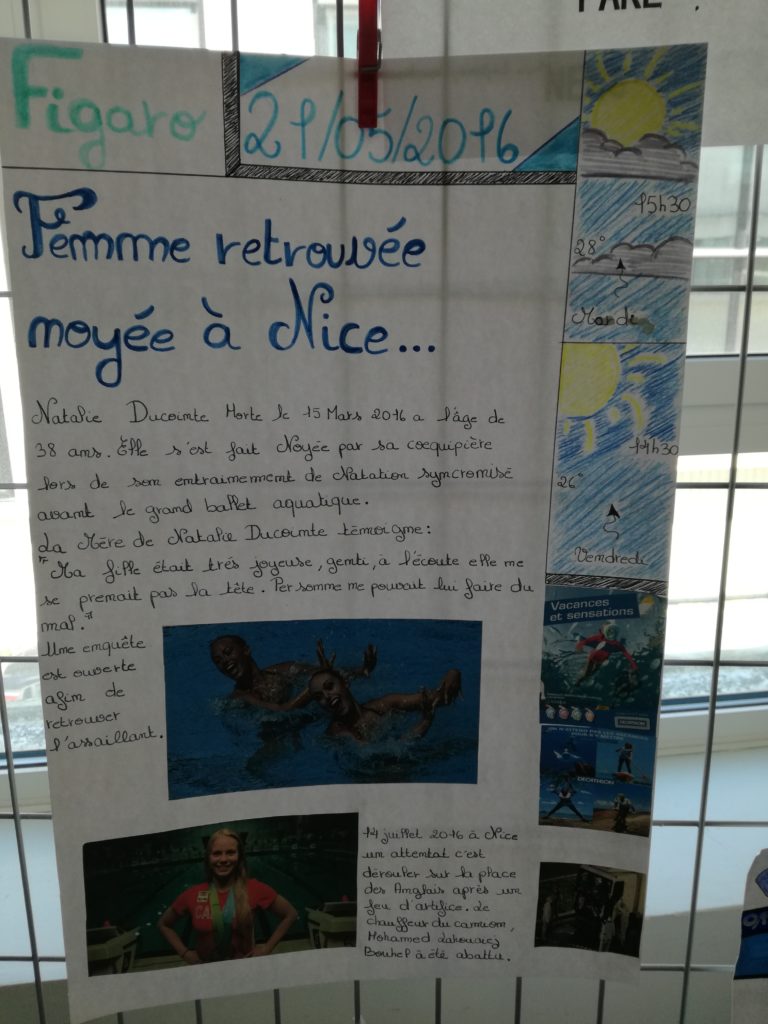 Figaro
21/05/2016
Femme retrouvée
moyée à Nice...
Natalie Ducointe Morte le 15 Mars 2016 a l'âge de
38 ans. Elle s'est fait Noyée par sa coequipière
lors de son entrainemment de Natation syncronisé
avant le grand ballet aquatique.
La Mère de Natalie Ducointe témoigne:
"Ma fille était très joyeuse, genti, à l'écoute elle me
se prenait pas la tête. Personne me pouvait lui faire du
mal."
Une enquête
est ouverte
afin de
retrouver
l'assaillant.
14 juillet 2016 à Nice
un attentat c'est
dérouler sur la place
des Anglais après un
feu d'artifice. Le
chauffeur du camion,
Mohamed
Bouhel à été abattu.
15h30
28°
Mardi
14h30
26°
Vendredi
Vacances
et sensations
DECATHLON
DECATHLON
CA